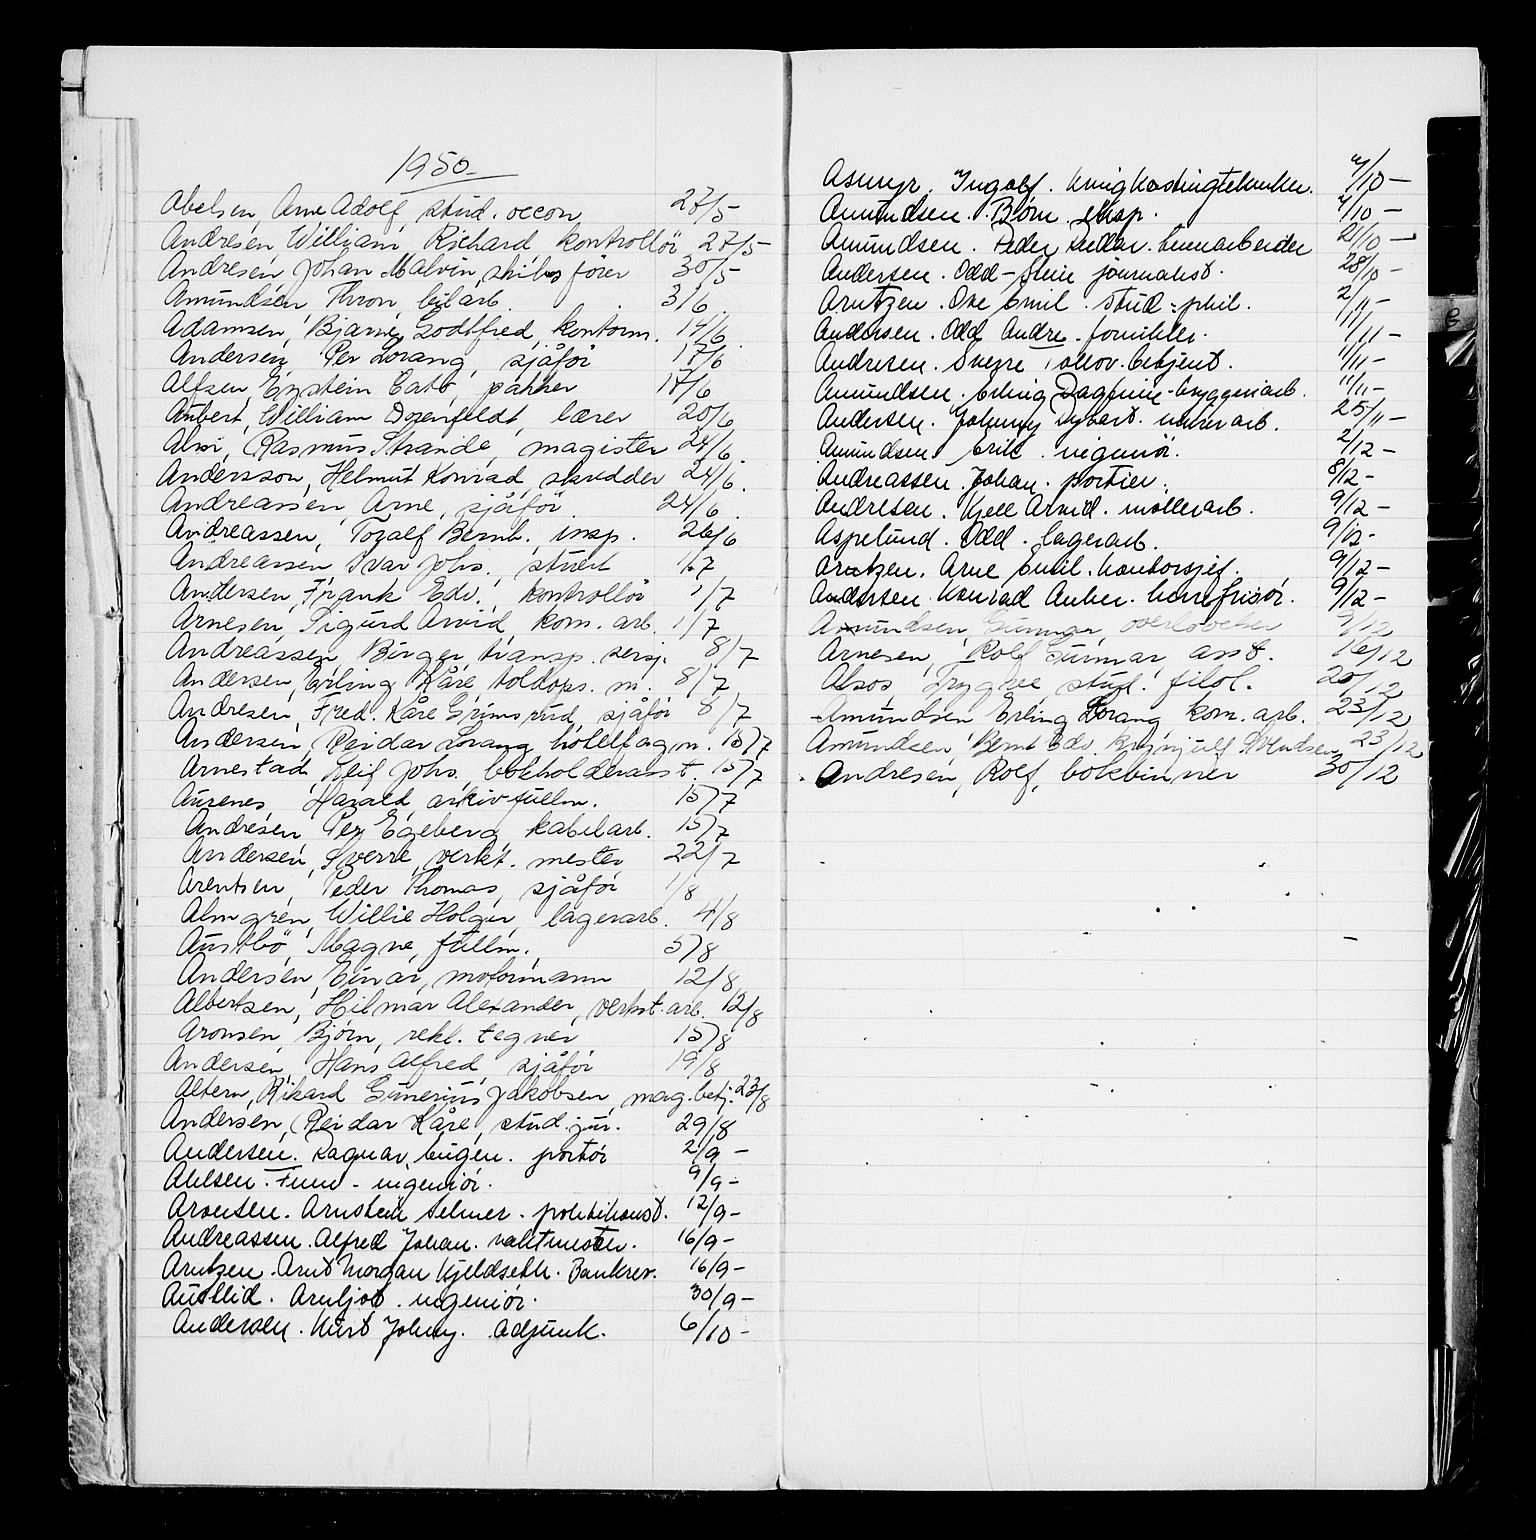 1950
Abelsen, Arne Adolf stud. oecon 27/5
Andresen, William, Richard, kontrollör 27/5-
Andresen, Johan Malvin, skibsförer 30/5
Amundsen, Thron, bilarb. 3/6
Adamsen, Bjarne Godtfred, kontorm. 17/6
Andersen, Per Lorang, sjåför 17/6
Alfsen, Eystein Cato, pakker 17/6
Aubert, William Dozenfeldt, lærer 20/6
Rasmus Strande, magister 24/6
Andersson, Helmut Konrad, skredder 24/6
Andreassen, Arne, sjåför 24/6
Andreassen, Toralf Bernh. insp. 26/6
Andreassen, Ivar Johs., stuert 1/7
Andersen, Frank Edv. kontrollör 1/7
Arnesen, Sigurd Arvid, kom. arb. 1/7
Andreassen, Birger, transp. sersj. 8/7
Andersen, Erling Kåre, toldops. m. 8/7
Andresen, Fred. Kåre Grimsrud, sjåför 8/7
Andersen, Reidar Lorang, hotellfagm. 15/7
Arnestad, Leif Johs. bokholderasst. 15/7
Aurenes, Harald, arkivfullm. 15/7
Andresen, Per Egeberg, kabelarb. 15/7
Andersen, Sverre, verkt. mester 22/7
Arentsen, Peder Thomas, sjåför 1/8
Almgren, Willie Holger, lagerarb. 4/8
Austbö, Magne, fullm. 5/8
Andersen, Einar, motormann 12/8
Albertsen, Hilmar Alexander, verkst. arb. 12/8
Aronsen, Bjørn, rekl. tegner 15/8
Andersen, Hans Alfred, sjåför 19/8
Altern, Rikard Gunerius Jakobsen, mag. betj. 23/8
Andersen, Reidar Kåre, stud. jur. 29/8
Andersen. Ragnar, Eugen. portör 2/9 -
Ahlsen. Finn - ingeniör. 9/9 -
Arvesen. Arnstein Selmer. politikonst. 12/9 -
Andreassen. Alfred Johan. vaktmester. 16/9 -
Arntzen. Arnt Morgan Kjeldseth. Bankrev. 16/9 -
Austlid. Arnljot. ingeniör. 30/9 -
Andersen. Kurt Johny. Adjunk. 6/10 -
Asmyr. Ingolf. 7/10 -
Amundsen. Bjørn. eksp. 7/10 -
Amundsen. Peder 21/10 -
Andersen. Odd-Stein journalist. 28/10 -
Arntzen. Ove Emil. stud. phil. 2/11 -
Andersen. Odd Andre. formibler. 11/11 -
Andresen. Sverre, oltov. betjent. 11/11 -
Amundsen. Erling Dagfinn. bryggeriarb. 11/11 -
Andersen. Johnny Dybart. murerarb. 25/11 -
Amundsen. Erik. ingeniör. 2/12 -
Andreassen. Johan. portier. 8/12 -
Andresen. Kjell Arvid. möllerarb. 9/12 -
Aspelund. Odd. lagerarb. 9/12 -
Arntzen. Arne Emil. kontorsjef. 9/12 -
Andersen. Konrad Anker. herrefrisör. 9/12 -
Amundsen, Gunnar, 9/12
Arnesen, Rolf Gunnar, asst. 16/12
Alsos Trygve, stud. filol. 20/12
Amundsen Erling Lorang kom. arb. 23/12
Amundsen, Bernt Edv. 23/12
Andresen, Rolf, bokbinner 30/12